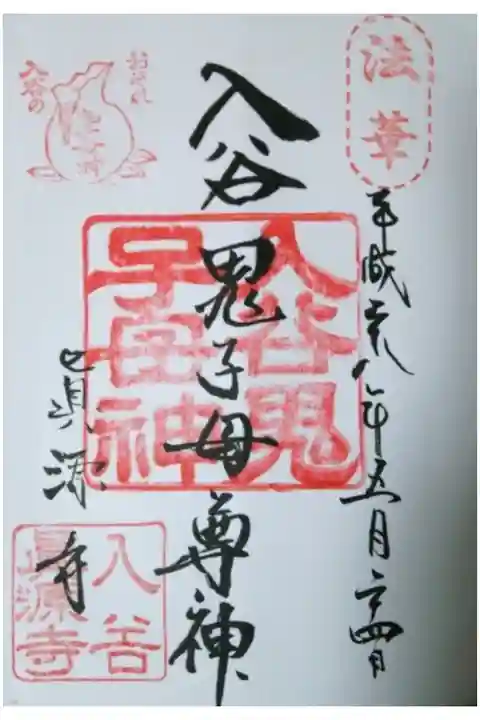 法華
平成二十八年五月二十四日
入谷鬼子母尊神
入谷鬼
子母神
おそれ
入谷の
真源寺
入谷
眞源寺